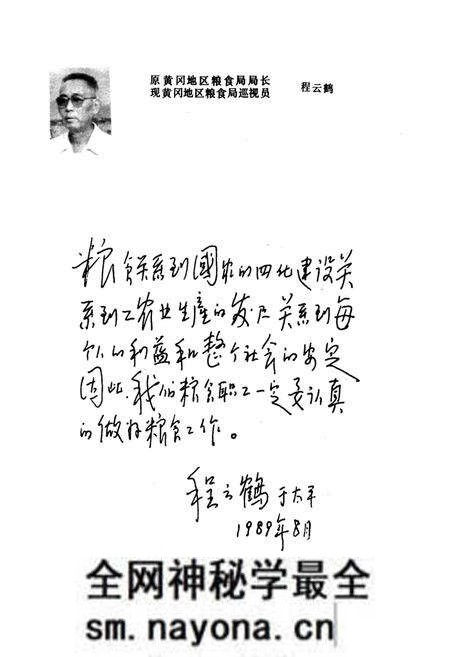 原黄冈地区粮食局局长
现黄冈地区粮食局巡视员
程云鹤
粮食关系到國家的四化建设关
系到工农业生産的发展关系到每
个人的利益和整个社会的安定
因此,我们粮食职工一定要认真
的做好粮食工作。
程云鹤 于太平
1989年8月
全网神秘学最全
sm.nayona.cn